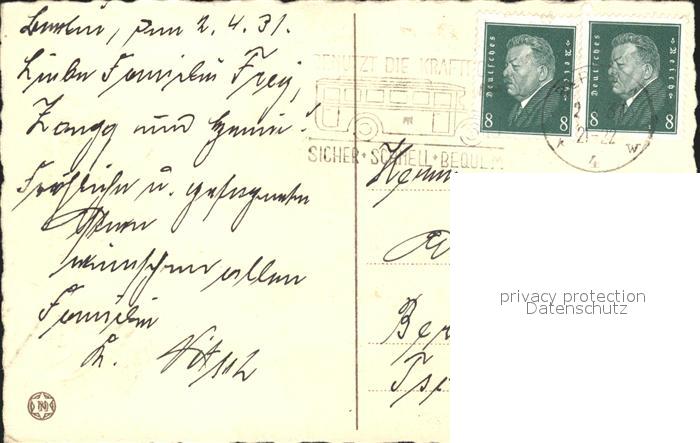 Berlin, den 2.4.31.
Liebe Familie Frey,
Zaugg und Henni!
Fröhliche u. gesegnete
Ostern
wünschen allen
Familie
K.
BENUTZT DIE KRAFTP
SICHER + SCHNELL + BEQUEM
Deutsches Reich
8 8
Deutsches Reich
8 8
BER
2
21-22
W
4
Herrn
Ber
privacy protection
Datenschutz